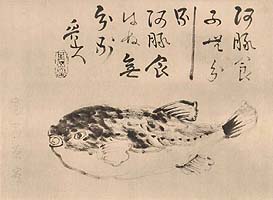 河豚食
ふ無分
別
河豚食
はぬ無
分別